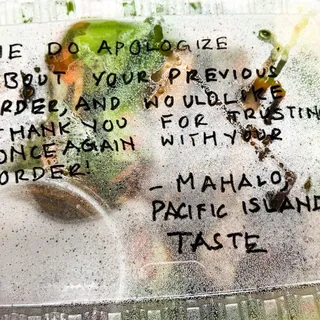 WE DO APOLOGIZE
ABOUT YOUR PREVIOUS
ORDER, AND WOULD LIKE
THANK YOU FOR TRUSTING
ONCE AGAIN WITH YOUR
ORDER!
- MAHALO
PACIFIC ISLAND
TASTE